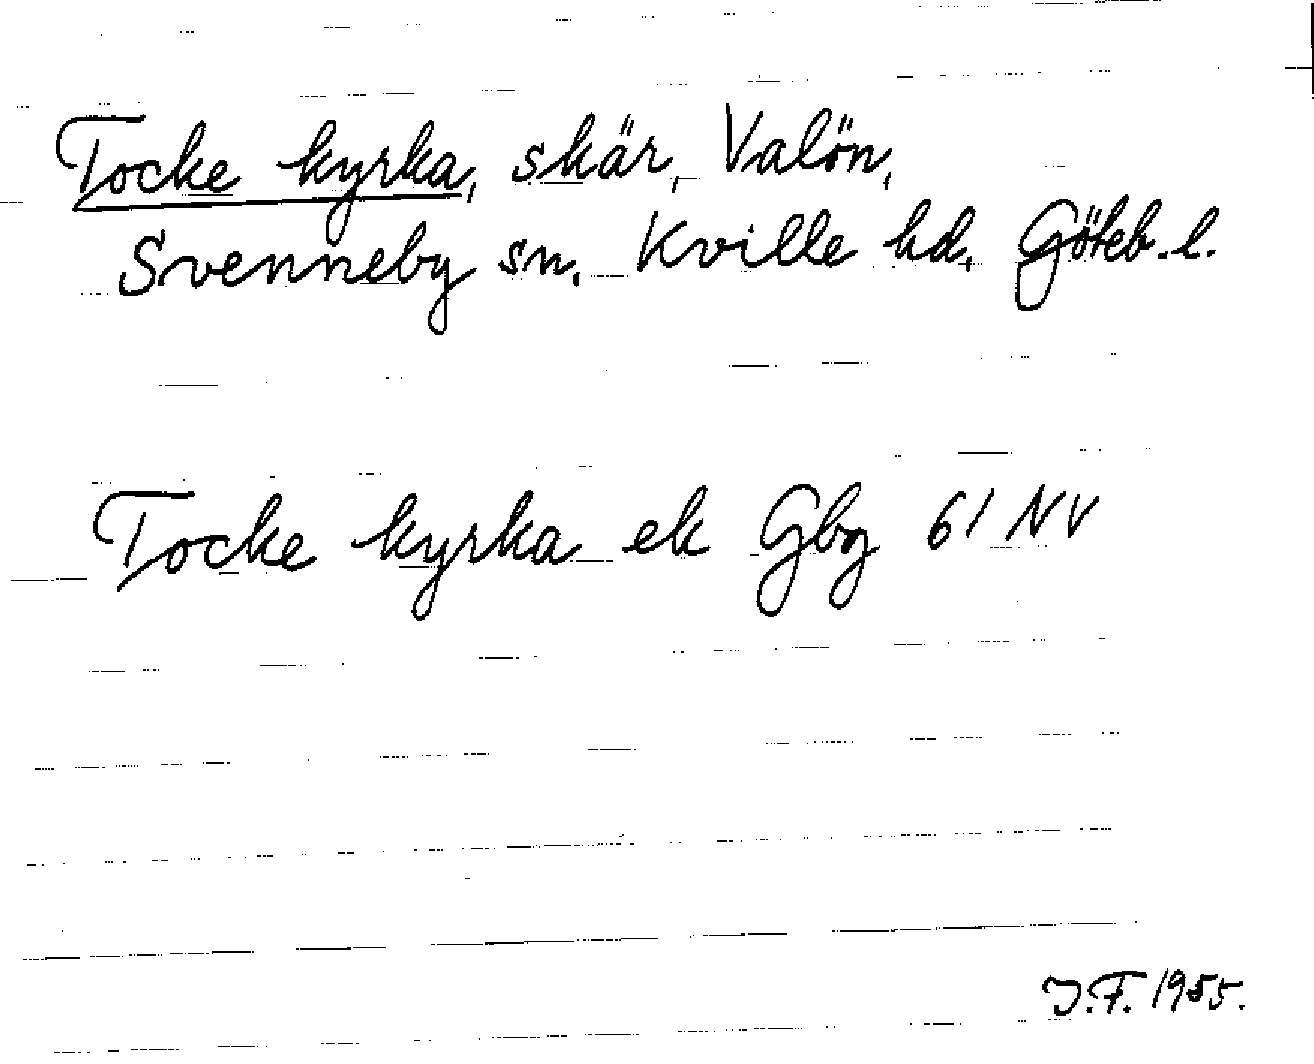 Tocke kyrka, skär, Valön,
Svenneby sn. Kville hd, Göteb. l.
Tocke kyrka ek Gbg 61 NV
J.F. 1955.